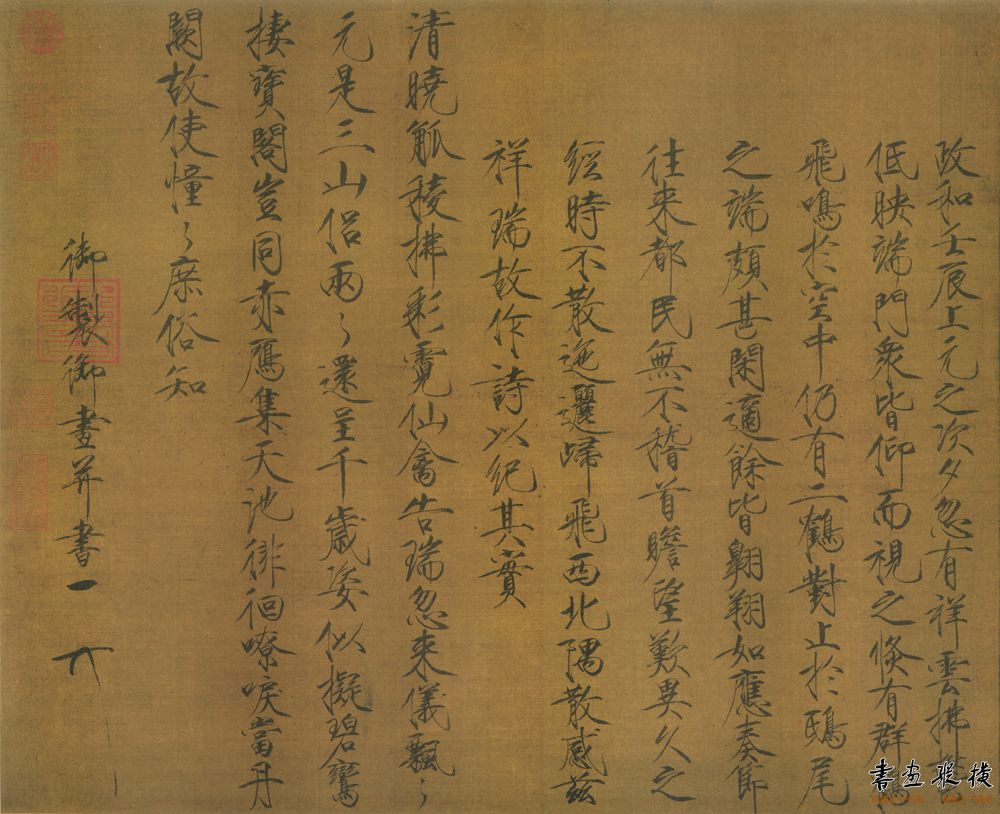 政和壬辰上元之次夕忽有祥雲拂鬱
低映端門衆皆仰而視之倏有群鶴
飛鳴於空中仍有二鶴對止於鴟尾
之端頗甚閑適餘皆翱翔如應奏節
往来都民無不稽首瞻望歎異久之
經時不散迤邐歸飛西北隅散感茲
祥瑞故作詩以紀其實
清曉觚稜拂彩霓仙禽告瑞忽来儀飄〻
元是三山侶兩〻還呈千歲姿似擬碧鸞
棲寶閣豈同赤鴈集天池徘徊嘹唳當丹
闕故使憧〻庶俗知
御製御畫并書
書画縱横